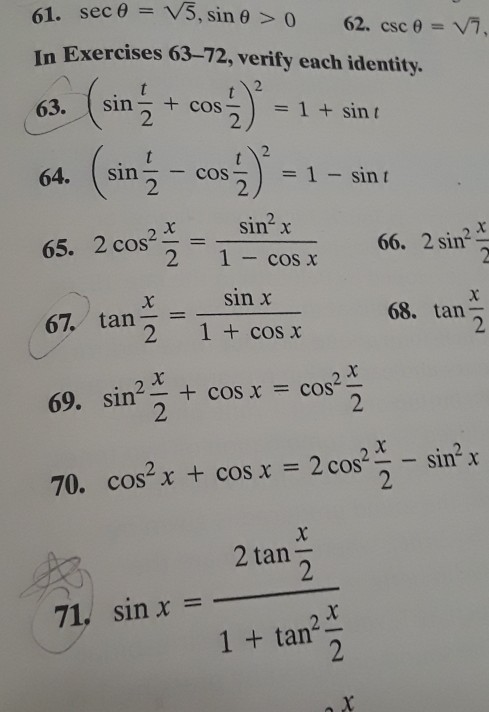 61. sec θ = √5, sin θ > 0 62. csc θ = √7,
In Exercises 63–72, verify each identity.
63. (sin t/2 + cos t/2)² = 1 + sin t
64. (sin t/2 − cos t/2)² = 1 − sin t
65. 2 cos² x/2 = sin² x / 1 − cos x 66. 2 sin² x/2
67. tan x/2 = sin x / 1 + cos x 68. tan x/2
69. sin² x/2 + cos x = cos² x/2
70. cos² x + cos x = 2 cos² x/2 − sin² x
71. sin x = 2 tan x/2 / 1 + tan² x/2
x